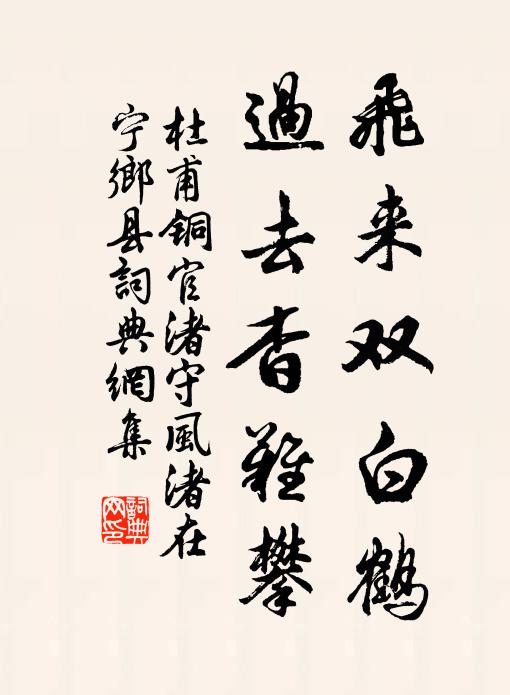 飛来双白鶴
過去杳難攀
杜甫銅官渚守風渚在
宁鄉县詞典網集
詞典網印